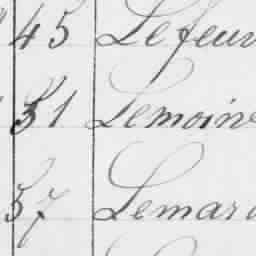 45 Lefeuv
51 Lemoine
57 Lemar